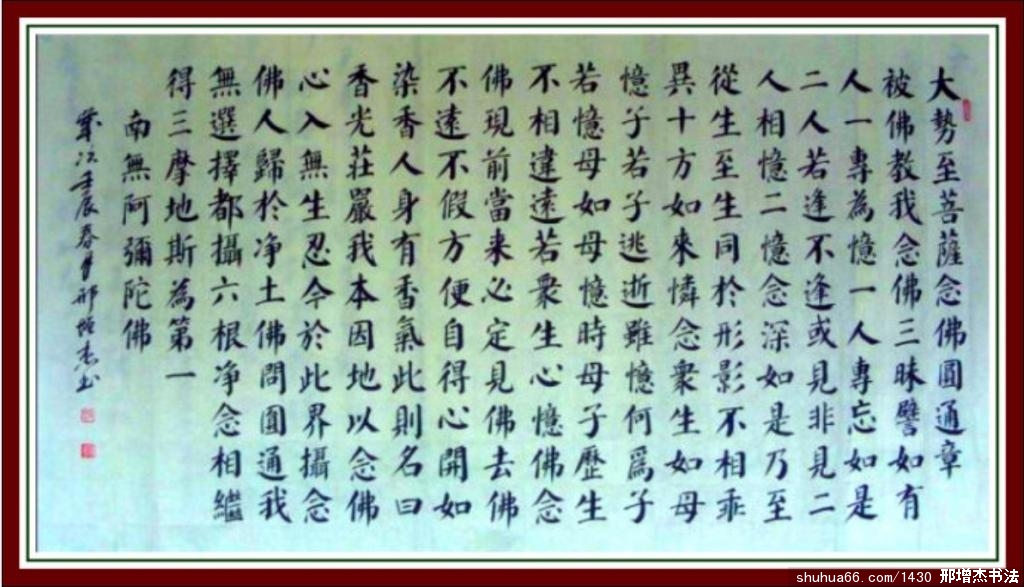 大勢至菩薩念佛圓通章
被佛教我念佛三昧譬如有
人一專為憶一人專忘如是
二人若逢不逢或見非見二
人相憶二憶念深如是乃至
從生至生同於形影不相乖
異十方如來憐念眾生如母
憶子若子逃逝雖憶何為子
若憶母如母憶時母子歷生
不相違遠若眾生心憶佛念
佛現前當來必定見佛去佛
不遠不假方便自得心開如
染香人身有香氣此則名曰
香光莊嚴我本因地以念佛
心入無生忍今於此界攝念
佛人歸於净土佛問圓通我
無選擇都攝六根净念相繼
得三摩地斯為第一
南無阿彌陀佛
歲次壬辰春月邢增杰书
shuhua66.com/1430 邢增杰书法